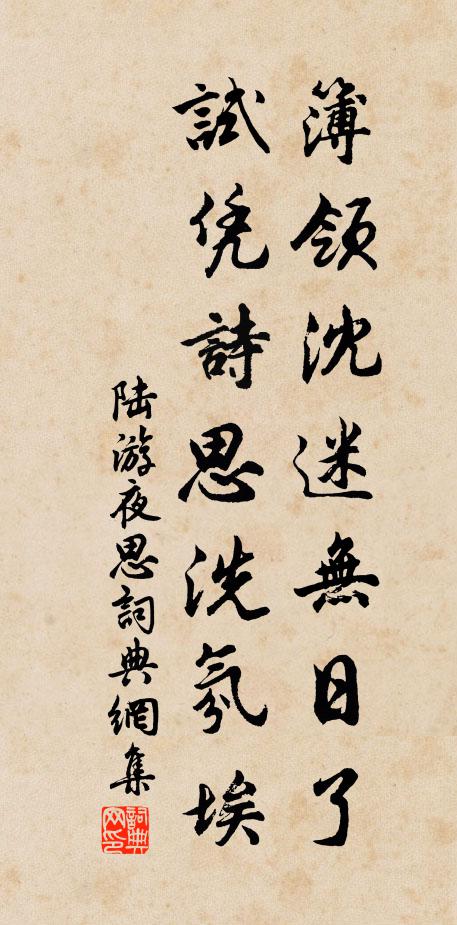 簿領沈迷無日了
試凭詩思洗氛埃
陆游夜思詞典網集
詞典网印